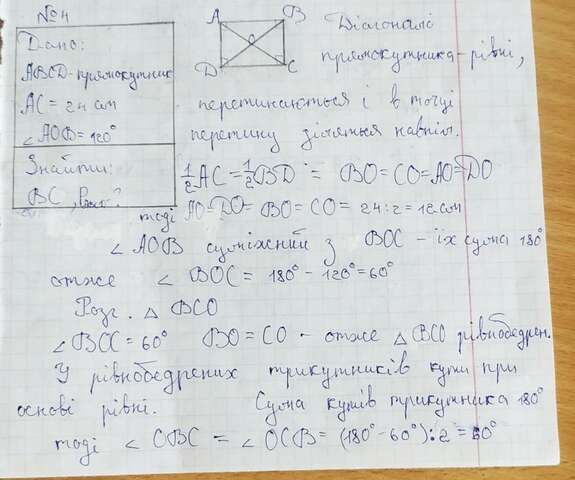 №4
Дано:
ABCD-прямокутник
AC = 24 см
∠AOB = 120°
Знайти:
BC
A B
O
D C
Діагоналі
прямокутника-рівні,
перетинаються і в точці
перетину діляться навпіл.
½AC = ½BD = BO = CO = AO = DO
тоді AO = DO = BO = CO = 24:2 = 12 см
∠ AOB суміжний з BOC - їх сума 180°
отже ∠ BOC = 180° - 120° = 60°
Розг. △ BCO
∠BOC = 60° BO = CO - отже △ BCO рівнобедрен.
У рівнобедрених трикутників кути при
основі рівні. Сума кутів трикутника 180°
тоді ∠ OBC = ∠ OCB = (180° - 60°):2 = 60°